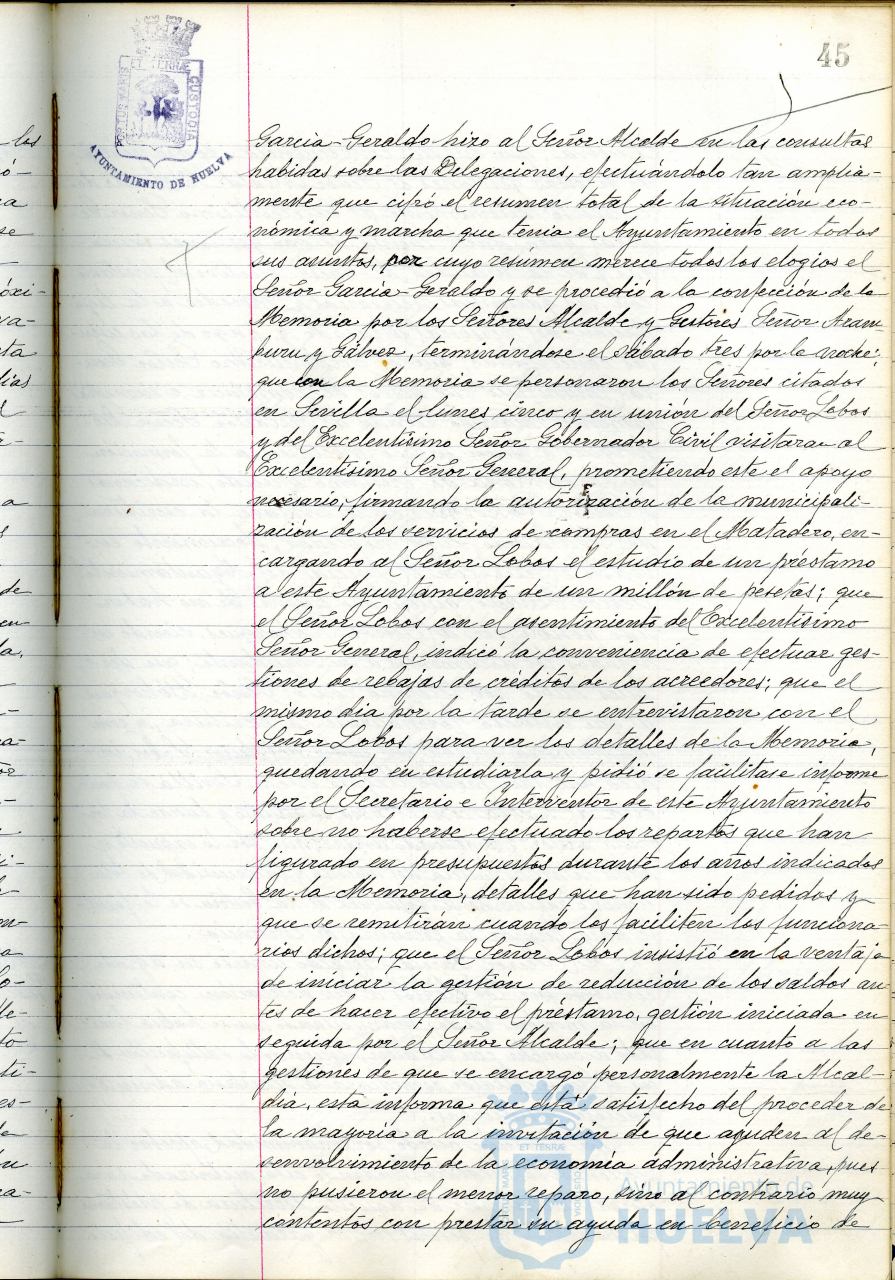 45
PORTUS MARIS
ET TERRÆ
CUSTODIA
AYUNTAMIENTO DE HUELVA
Garcia-Geraldo hizo al Señor Alcalde en las consultas
habidas sobre las Delegaciones, efectuándolo tan amplia-
mente que cifró el resumen total de la situación eco-
nómica y marcha que tenia el Ayuntamiento en todos
sus asuntos, por cuyo resúmen merece todos los elogios el
Señor Garcia-Geraldo y se procedió a la confección de la
Memoria por los Señores Alcalde y Gestores Señor Aram-
buru y Gálvez, terminándose el sábado tres por la noche;
que con la Memoria se personaron los Señores citados
en Sevilla el lunes cinco y en unión del Señor Lobos
y del Excelentisimo Señor Gobernador Civil visitaran al
Excelentisimo Señor General, prometiendo este el apoyo
necesario, firmando la autorización de la municipali-
zación de los servicios de compras en el Matadero, en-
cargando al Señor Lobos el estudio de un préstamo
a este Ayuntamiento de un millón de pesetas; que
el Señor Lobos con el asentimiento del Excelentisimo
Señor General, indicó la conveniencia de efectuar ges-
tiones de rebajas de créditos de los acreedores; que el
mismo dia por la tarde se entrevistaron con el
Señor Lobos para ver los detalles de la Memoria,
quedando en estudiarla y pidió se facilitase informe
por el Secretario e Interventor de este Ayuntamiento
sobre no haberse efectuado los repartos que han
figurado en presupuestos durante los años indicados
en la Memoria, detalles que han sido pedidos y
que se remitirán cuando los faciliten los funciona
rios dichos; que el Señor Lobos insistió en la ventaja
de iniciar la gestión de reducción de los saldos an
tes de hacer efectivo el préstamo, gestión iniciada en-
seguida por el Señor Alcalde; que en cuanto a las
gestiones de que se encargó personalmente la Alcal-
dia, esta informa que está satisfecho del proceder de
la mayoria a la invitación de que ayuden al de-
senvolvimiento de la economia administrativa, pues
no pusieron el menor reparo, sino al contrario muy
contentos con prestar su ayuda en beneficio de
Ayuntamiento de
HUELVA